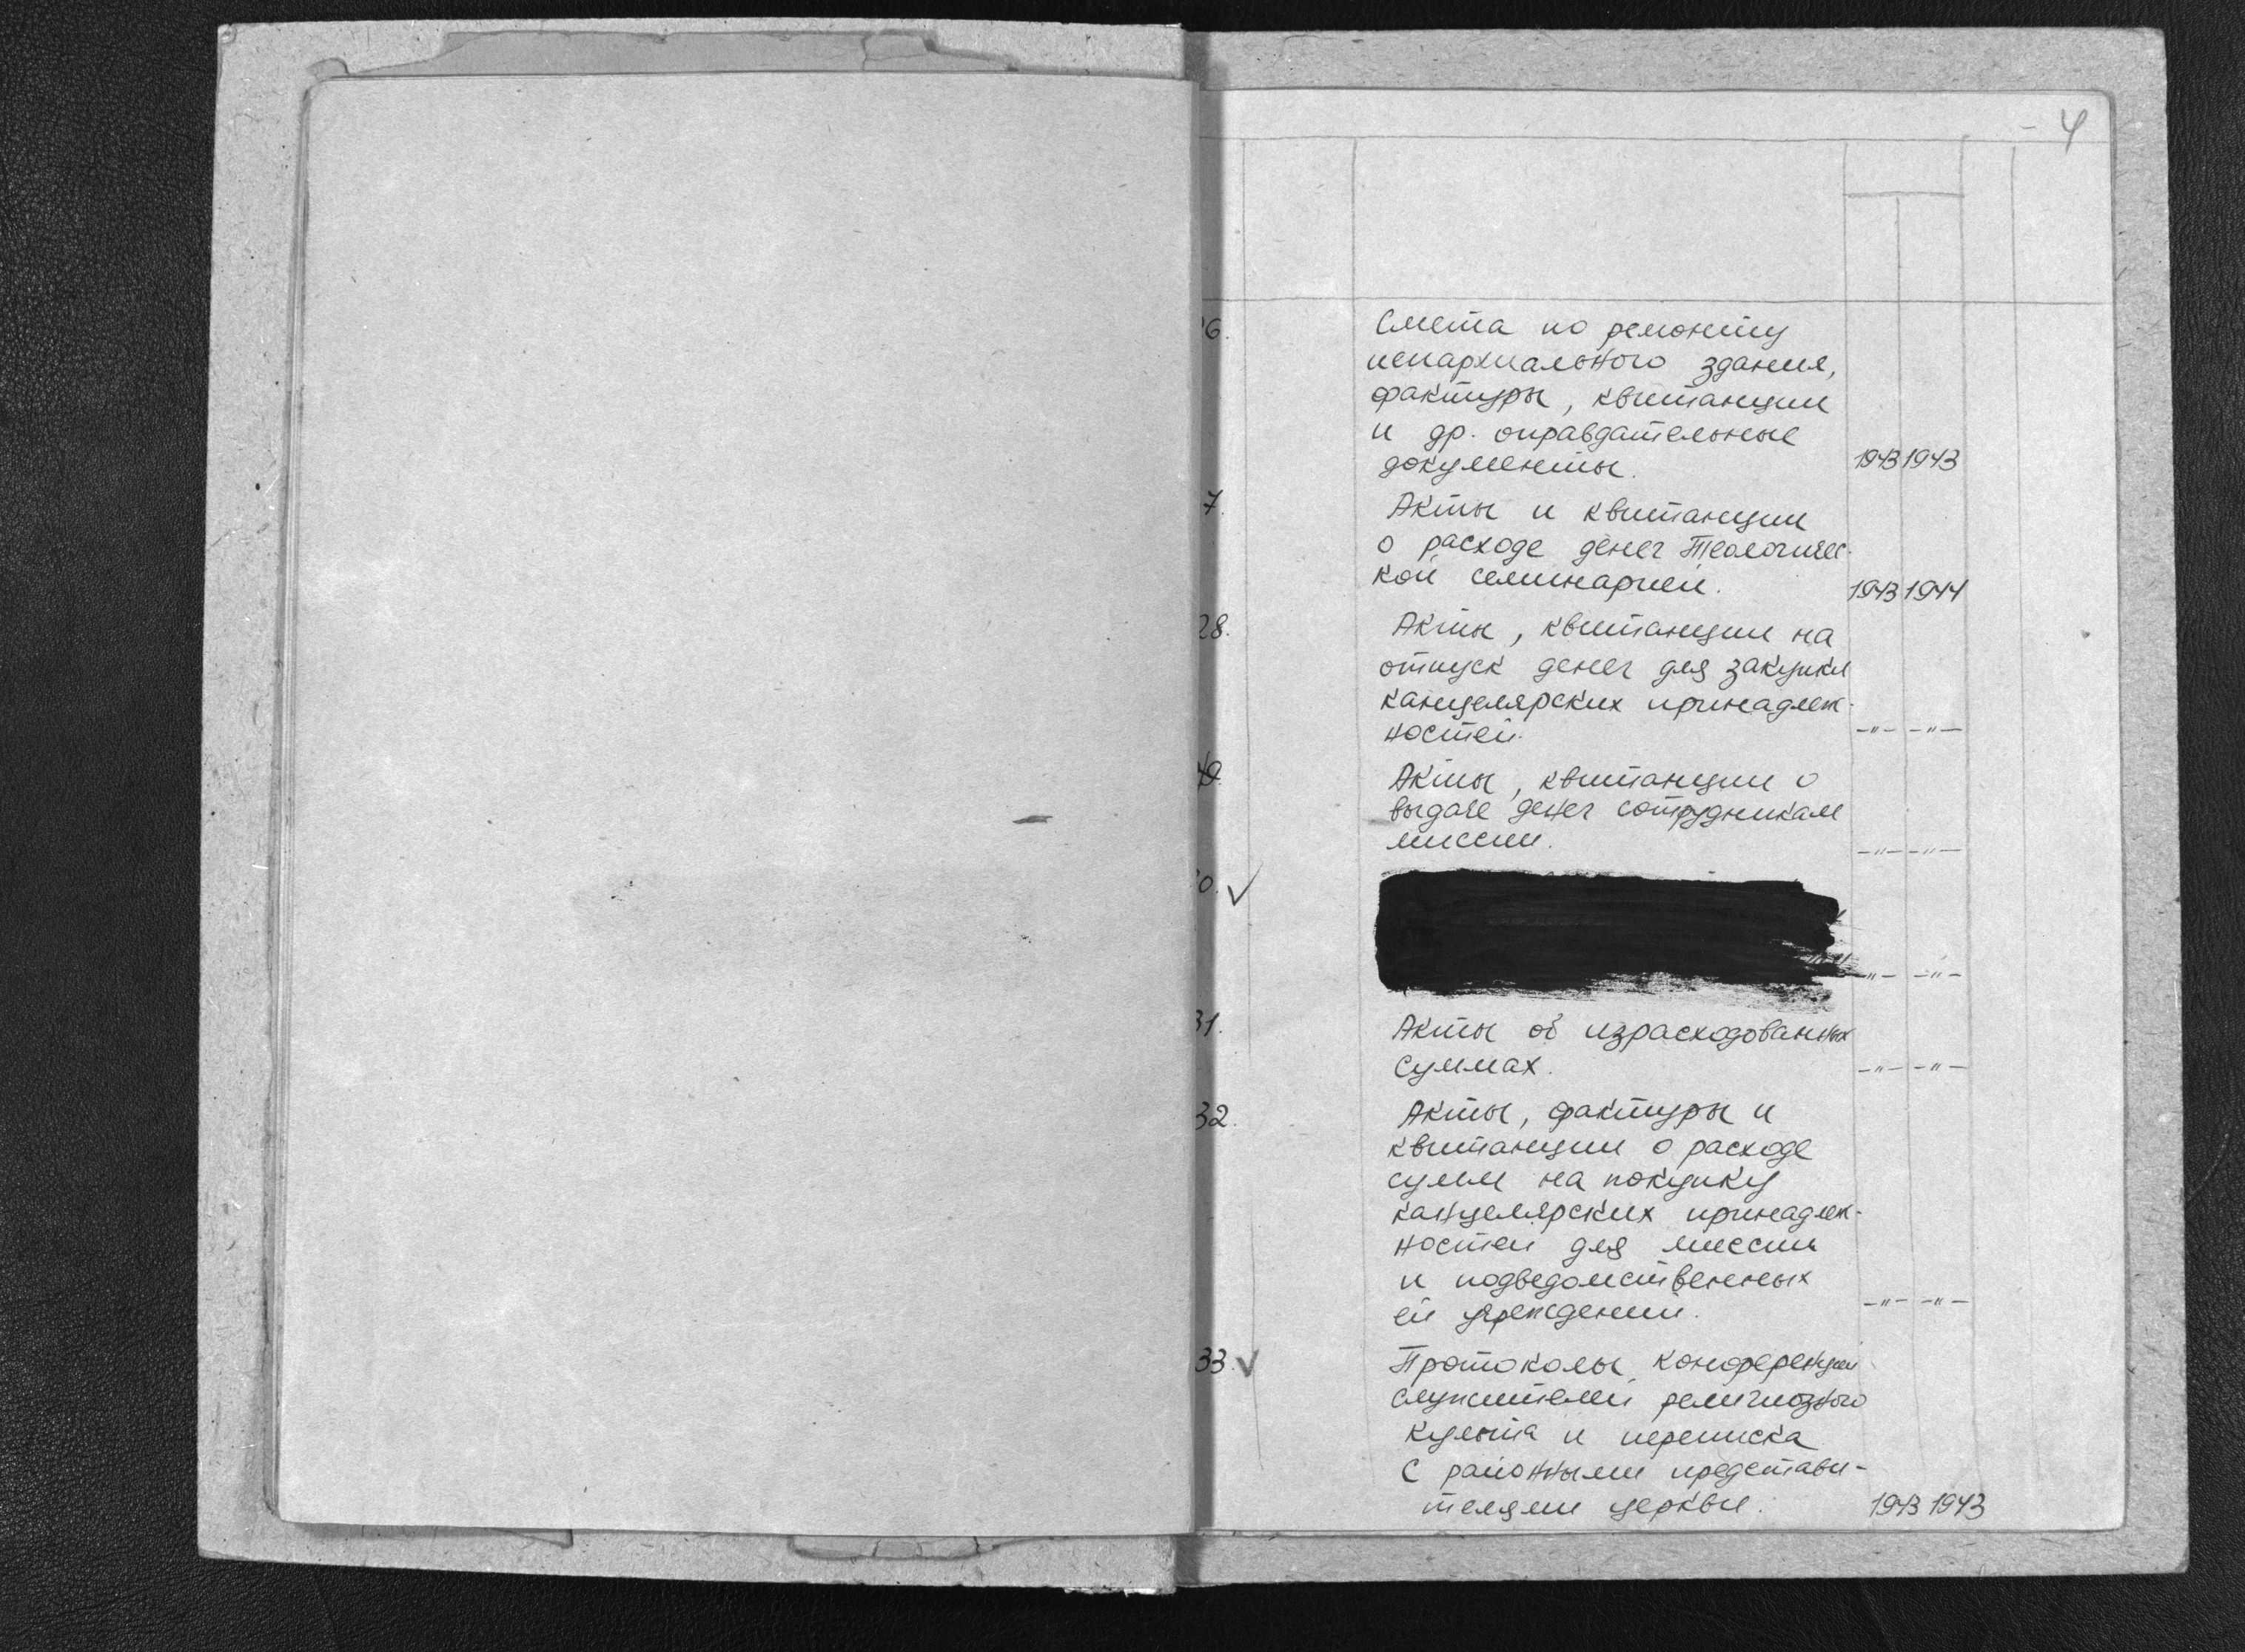 4
6. Смета по ремонту
иепархиального здания,
фактуры, квитанции
и др. оправдательные
документы. 1943 1943
7. Акты и квитанции
о расходе денег Теологичес-
кой семинарией. 1943 1944
28. Акты, квитанции на
отпуск денег для закупки
канцелярских принадлеж-
ностей. -"- -"-
Акты, квитанции о
выдаче денег сотрудникам
миссии. -"- -"-
0. ✓ -"- -"-
31. Акты об израсходованных
суммах. -"- -"-
32. Акты, фактуры и
квитанции о расходе
сумм на покупку
канцелярских принадлеж-
ностей для миссии
и подведомственных
ей учреждений. -"- -"-
33. ✓ Протоколы конференции
служителей религиозного
культа и переписка
с районными представи-
телями церкви. 1943 1943